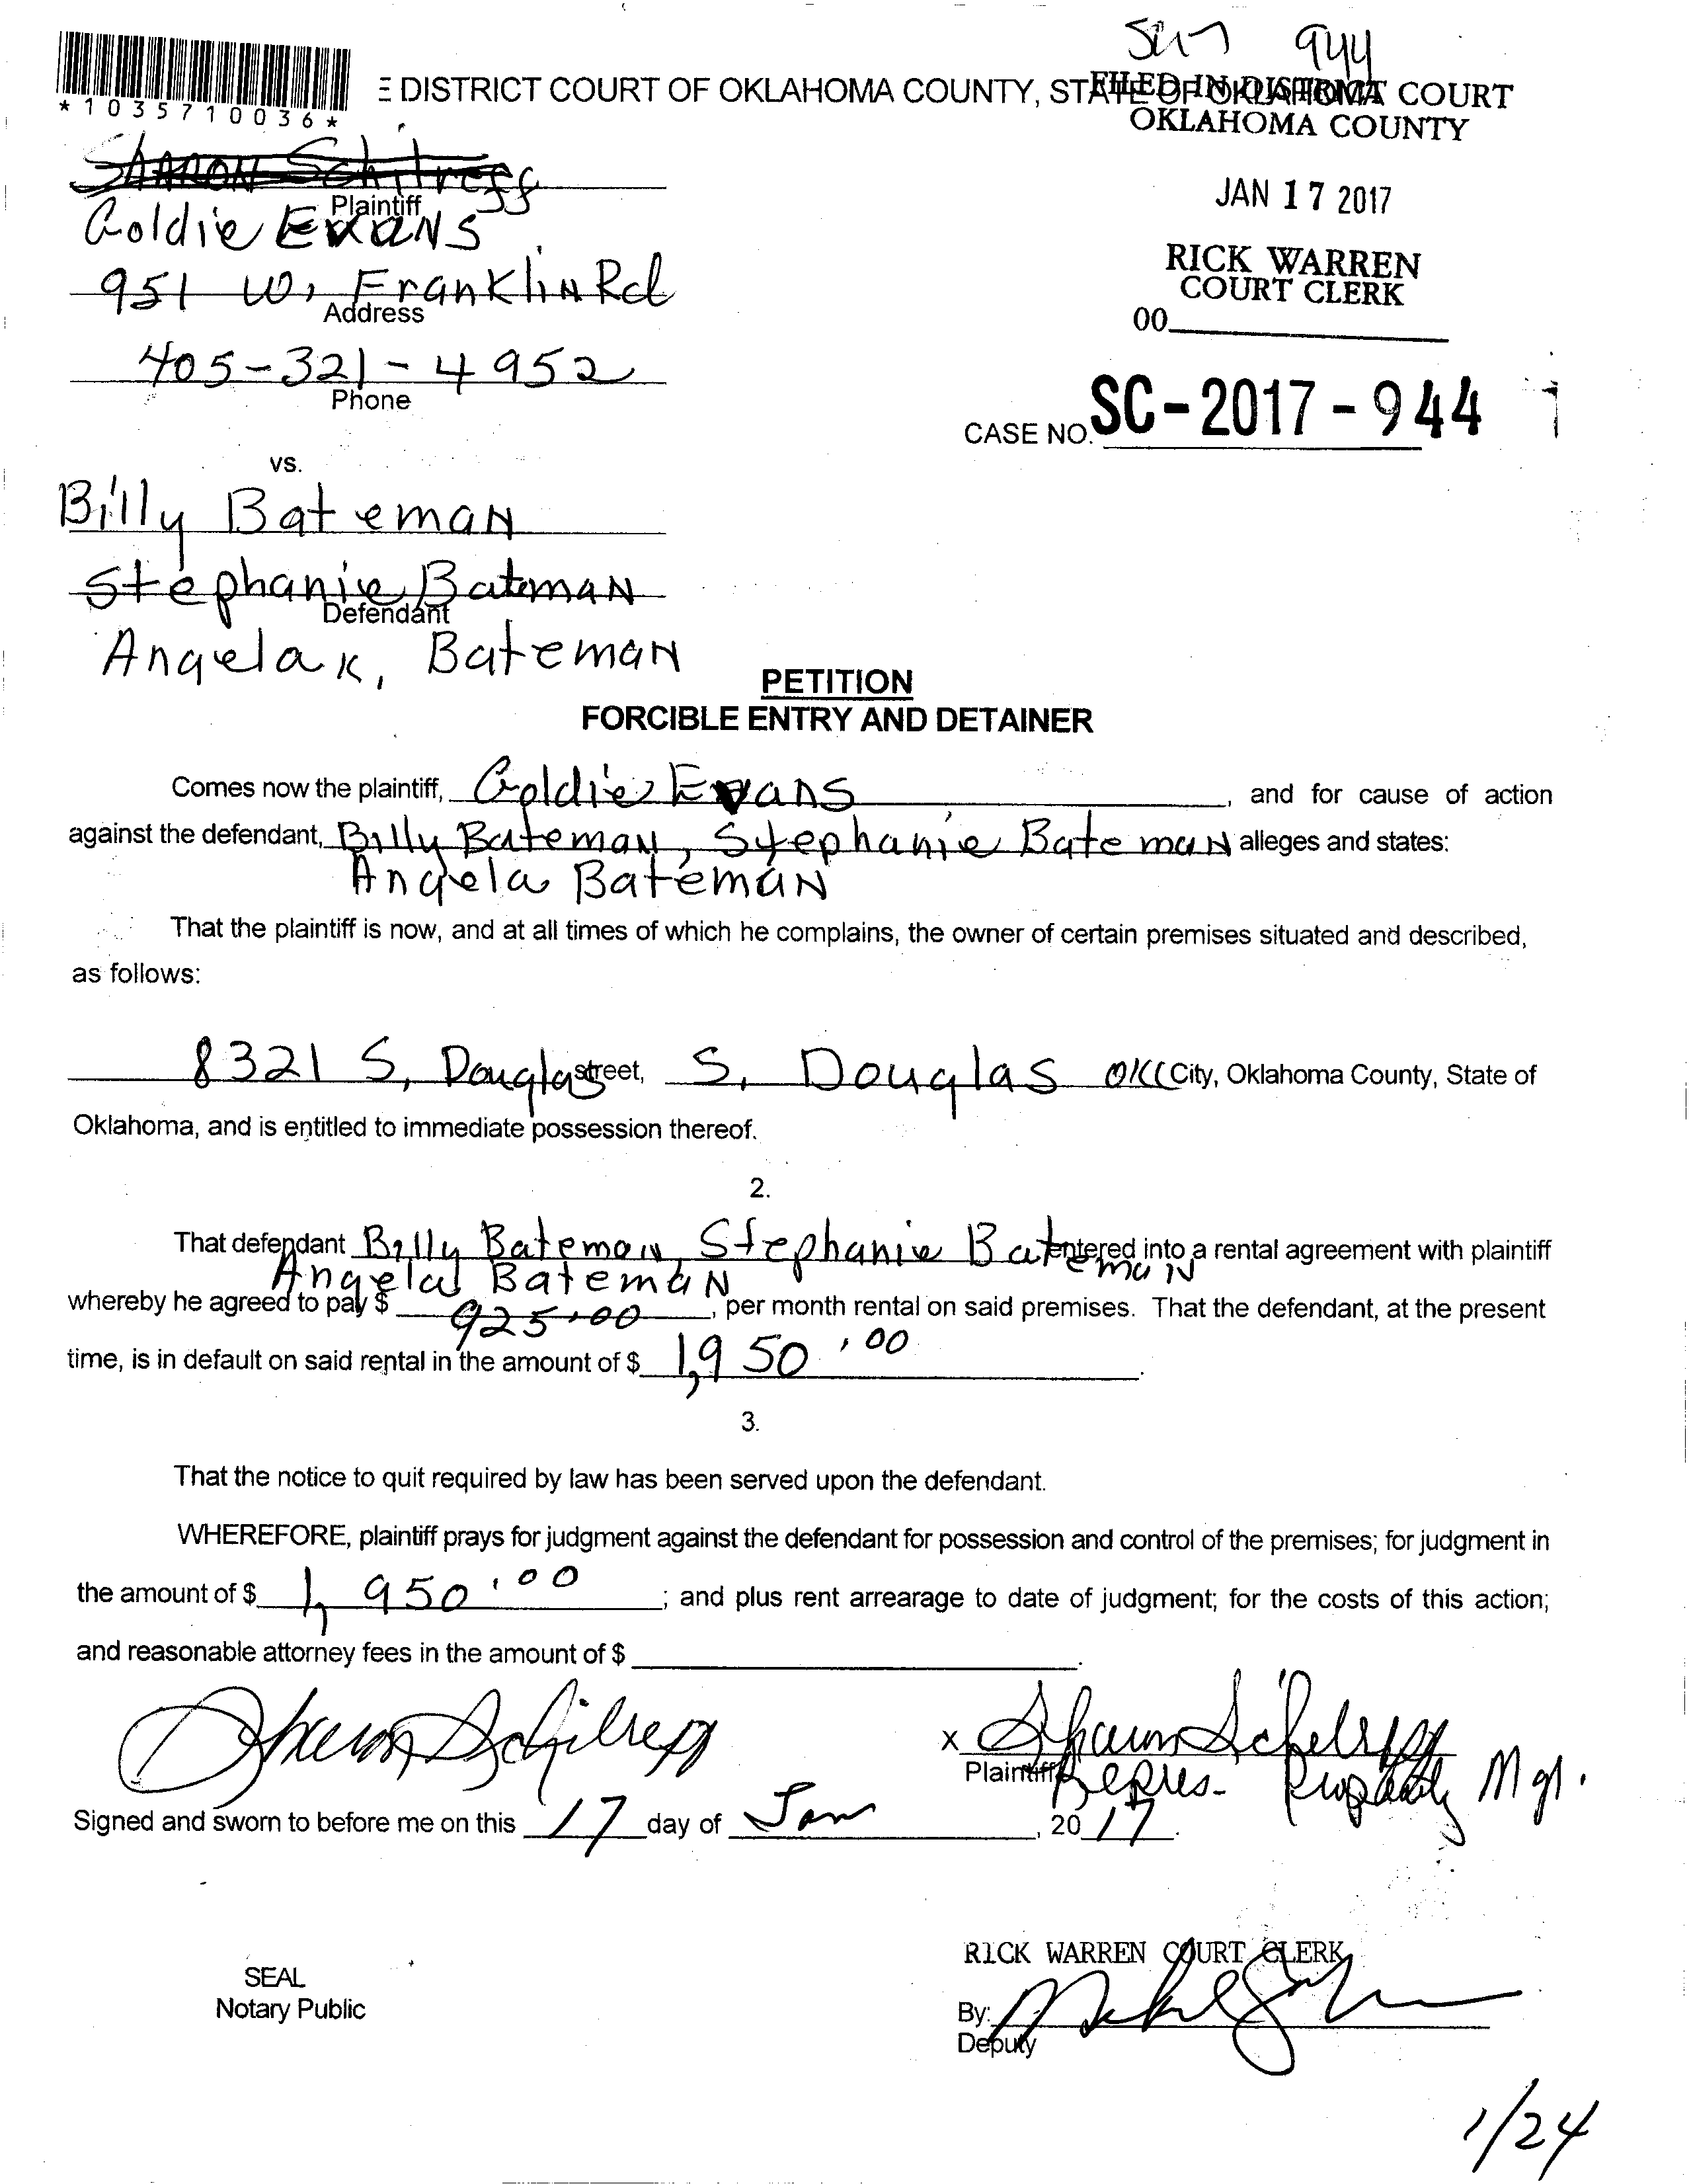 944
DISTRICT COURT OF OKLAHOMA COUNTY, STATE OF OKLAHOMA
FILED IN DISTRICT COURT
OKLAHOMA COUNTY
*1035710036*
JAN 17 2017
Plaintiff
Goldie Evans
RICK WARREN
COURT CLERK
951 W. Franklin Rd
Address
00
405-321-4952
Phone
CASE NO. SC-2017-944
vs.
Billy Bateman
Stephanie Bateman
Defendant
Angela K. Bateman
PETITION
FORCIBLE ENTRY AND DETAINER
Comes now the plaintiff, Goldie Evans, and for cause of action
against the defendant, Billy Bateman, Stephanie Bateman alleges and states:
Angela Bateman
That the plaintiff is now, and at all times of which he complains, the owner of certain premises situated and described,
as follows:
8321 S, Douglas street, S. Douglas OKC City, Oklahoma County, State of
Oklahoma, and is entitled to immediate possession thereof.
2.
That defendant Billy Bateman Stephanie Bateman entered into a rental agreement with plaintiff
Angela Bateman
whereby he agreed to pay $ 925.00, per month rental on said premises. That the defendant, at the present
time, is in default on said rental in the amount of $ 1,950.00.
3.
That the notice to quit required by law has been served upon the defendant.
WHEREFORE, plaintiff prays for judgment against the defendant for possession and control of the premises; for judgment in
the amount of $ 1,950.00; and plus rent arrearage to date of judgment; for the costs of this action;
and reasonable attorney fees in the amount of $.
x
Plaintiff Repres- Property Mgr.
Signed and sworn to before me on this 17 day of Jan, 20 17.
RICK WARREN COURT CLERK
SEAL
Notary Public
By:
Deputy
1/24